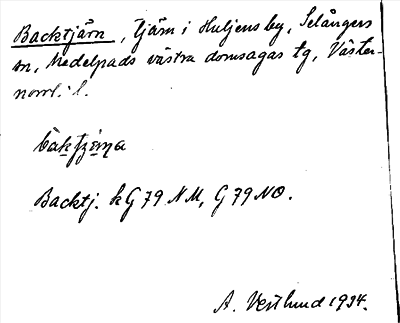 Backtjärn, Tjärn i Huljens by, Selångers
sn, Medelpads västra domsagas tg, Väster-
norrl. l.
Backtj. kG 79 NM, G 79 NO.
A. Vestlund 1934.